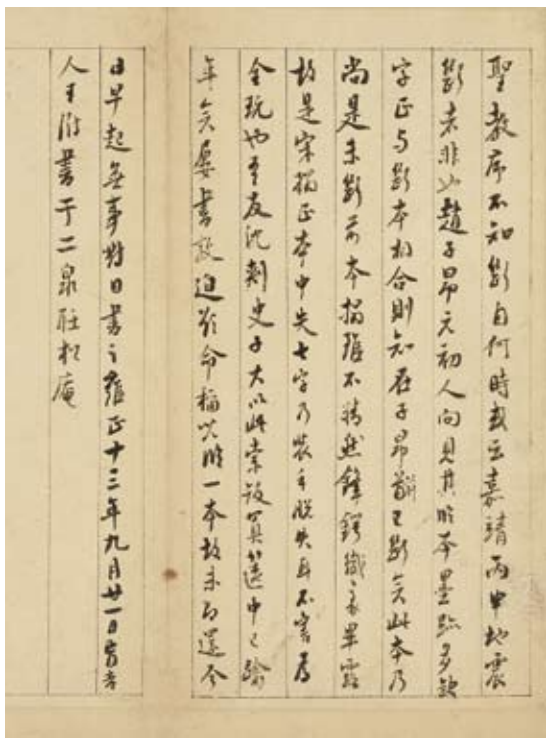 聖教序不知斷自何時或云嘉靖丙申地震
斷者非也趙子昂元初人向見其臨本墨跡多缺
字正与斷本相合則知在子昂前已斷矣此本乃
尚是未斷前本搨雖不精然鋒鍔纖豪畢露
故是宋搨正本中失七字乃裝手脫失耳不害爲
全玩也吾友沈刺史子大以此索跋置篋中已踰
年矣屢書敦迫欲命以臨一本故未即還今
日早起無事對日書之雍正十三年九月廿一日
人王澍書于二泉聽松庵